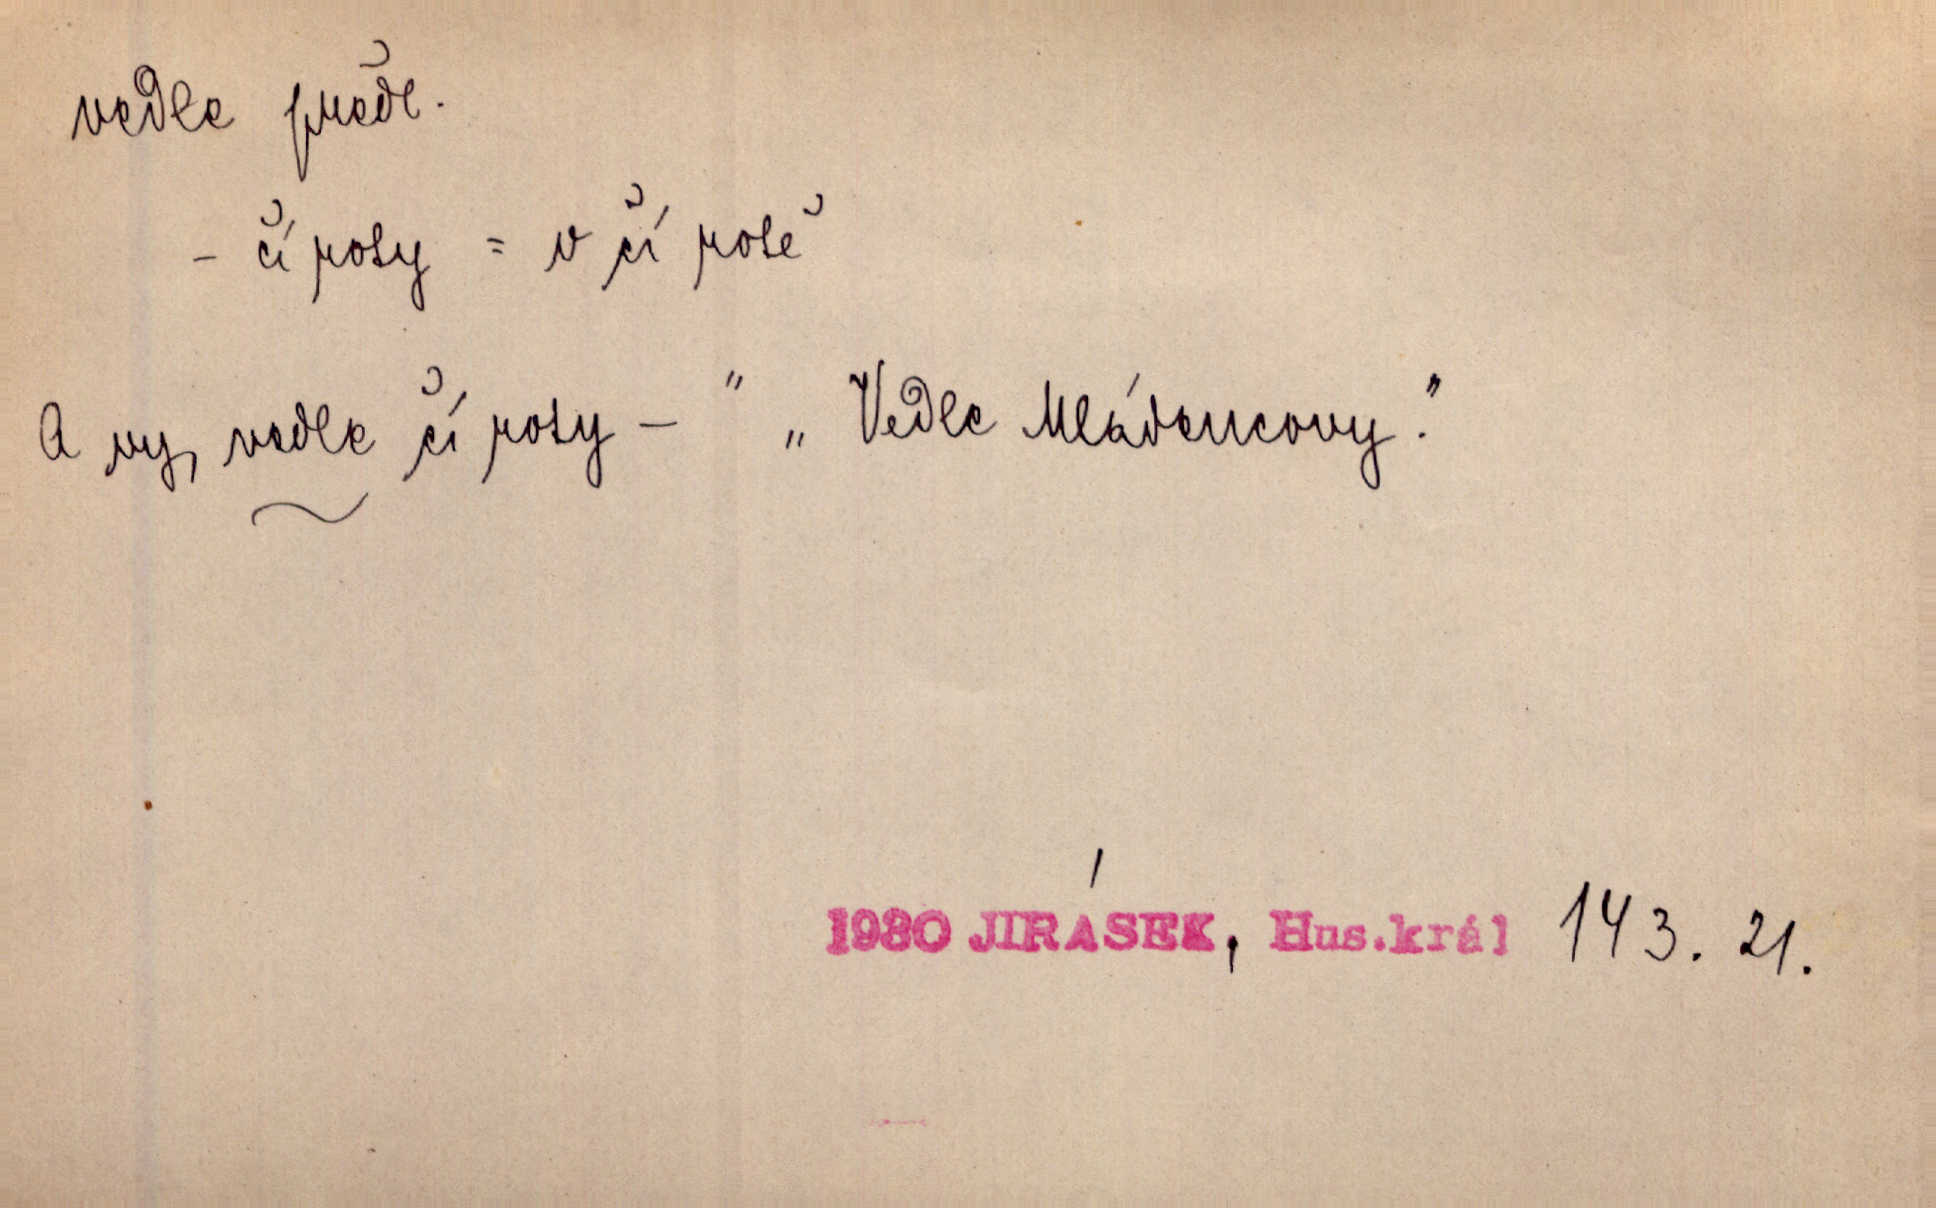 vedle předl.
– čí roty = v čí rotě
A vy, vedle čí roty – " „ Vedle Mládencovy."
1930 JIRÁSEK, Hus.král 143. 21.